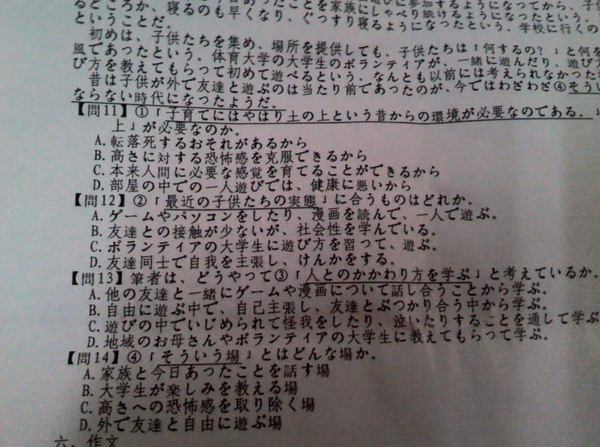 るところか、寝るのも早くなり、ぐっすり寝るようになったという。学校に行くの
ということだ。
初めは、子供たちを集め、場所を提供しても、子供たちは「何するの？」と何を
風であったという。体育大学の大学生のボランティアが、一緒に遊んだり、遊び方
び方を教えてもらって初めて遊べるという、なんとも以前には考えられなかった
昔は子供が外で友達と遊ぶのは当り前であったのが、今ではわざわざ④そうい
ならない時代になったようだ。
【問11】①「子育てにはやはり土の上という昔からの環境が必要なのである。」
上」が必要なのか。
A. 転落死するおそれがあるから
B. 高さに対する恐怖感を克服できるから
C. 本来人間に必要な感覚を育てることができるから
D. 部屋の中での一人遊びでは、健康に悪いから
【問12】②「最近の子供たちの実態」に合うものはどれか。
A. ゲームやパソコンをしたり、漫画を読んで、一人で遊ぶ。
B. 友達との接触が少ないが、社会性を学んでいる。
C. ボランティアの大学生に遊び方を習って、遊ぶ。
D. 友達同士で自我を主張し、けんかをする。
【問13】筆者は、どうやって③「人とのかかわり方を学ぶ」と考えているか。
A. 他の友達と一緒にゲームや漫画について話し合うことから学ぶ。
B. 自由に遊ぶ中で、自己主張し、友達とぶつかり合う中から学ぶ。
C. 遊びの中でいじめられて怪我をしたり、泣いたりすることを通して学ぶ
D. 地域のお母さんやボランティアの大学生に教えてもらって学ぶ。
【問14】④「そういう場」とはどんな場か。
A. 家族と今日あったことを話す場
B. 大学生が楽しみを教える場
C. 高さへの恐怖感を取り除く場
D. 外で友達と自由に遊ぶ場
六、作文